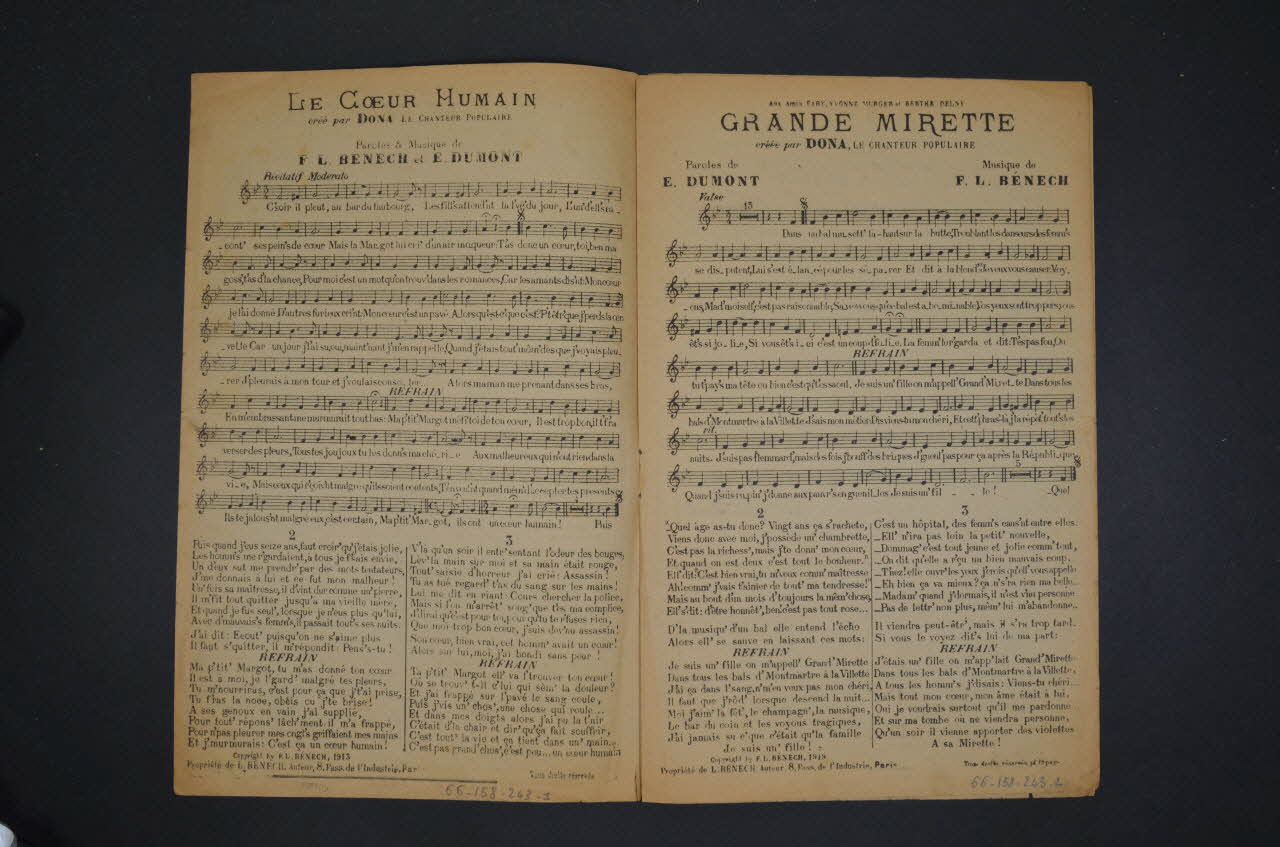 LE CŒUR HUMAIN
créé par DONA LE CHANTEUR POPULAIRE
Paroles & Musique de
F. L. BÉNECH et E. DUMONT
Récitatif Moderato
C'soir il pleut, au bar du faubourg, Les fill's attend'nt la fin du jour, L'un' d'ell's ra-
-cont' ses pein's de cœur Mais la Margot lui cri' d'un air moqueur: T'as donc un cœur, toi, ben ma
goss', t'as d'la chance, Pour moi c'est un mot qu'on trouv' dans les romances, Car les amants dis'nt: Mon cœur
je l'ai donné D'autres furieux cri'nt: Mon cœur c'est un pavé Alors qu'est-c'que c'est? P't'êtr' que j'perds la cer-
-velle Car un jour j'l'ai su, oui, maint'nant j'm'en rappelle, Quand j'étais tout' môm' dès que j'voyais pleu-
-rer J'pleurais à mon tour et j'voulais conso_ler... Alors maman me prenant dans ses bras,
REFRAIN
En m'embrassant me murmurait tout bas: Ma p'tit' Margot méfi' toi de ton cœur, Il est trop bon, il t'f'ra
verser des pleurs, Tous tes joujoux tu les donn's ma ché_ri_e Aux malheureux qui n'ont rien dans la
vi_e, Mais ceux qui r'çoiv'nt malgré qu'ils soient contents, T'en veul'nt quand mêm' d'accepter tes présents
Ils te jalous'nt malgré eux, c'est certain, Ma p'tit' Margot, ils ont un cœur humain! Puis
2
Puis quand j'eus seize ans, faut croir' qu'j'étais jolie,
Les homm's me r'gardaient, à tous je f'sais envie,
Un d'eux sut me prendr' par des mots tentateurs,
J'me donnais à lui et ce fut mon malheur!
Un' fois sa maîtresse, il d'vint dur comme un' pierre,
Il m'fit tout quitter jusqu'à ma vieille mère,
Et quand je fus seul', lorsque je n'eus plus qu'lui,
Avec d'mauvais's femm's, il passait tout's ses nuits.
J'ai dit: Ecout' puisqu'on ne s'aime plus
Il faut s'quitter, il m'répondit: Pens's-tu!
REFRAIN
Ma p'tit' Margot, tu m'as donné ton cœur
Il est à moi, je l'gard' malgré tes pleurs,
Tu m'nourriras, c'est pour ça que j't'ai prise,
Tu f'ras la noce, obéis ou j'te brise!
A ses genoux en vain j'ai supplié,
Pour tout' répons' lâch'ment il m'a frappé,
Pour n'pas pleurer mes ongl's griffaient mes mains
Et j'murmurais: C'est ça un cœur humain!
3
V'là qu'un soir il entr' sentant l'odeur des bouges,
Lèv' la main sur moi et sa main était rouge,
Tout' saisie d'horreur j'ai crié: Assassin!
Tu as tué regard' t'as du sang sur les mains!
Lui me dit en riant: Cours chercher la police,
Mais si l'on m'arrêt' song' que t'es ma complice,
J'dirai qu'c'est pour toi, pour qu'tu te fuses rien,
Que moi trop bon cœur, j'suis dev'nu assassin!
Son cœur, bien vrai, cet homm' avait un cœur!
Alors sur lui, moi, j'ai bondi sans peur!
REFRAIN
Ta p'tit' Margot ell' va l'trouver ton cœur!
Où se trouv' t-il c'lui qui sèm' la douleur?
Et j'ai frappé sur l'pavé le sang coule,
Puis j'vis un' chos', une chose qui roule...
Et dans mes doigts alors j'ai pu la t'nir
C'était d'la chair et dir' qu'ça fait souffrir,
C'est tout' la vie et ça tient dans un' main...
C'est pas grand'chos', c'est peu... un cœur humain
Copyright by F. L. BÉNECH, 1913
Propriété de L. BÉNECH, Auteur, 8, Pass. de l'Industrie, Par
Tous droits réservés
66-158-243-1
Aux Amis FABY, YVONNE MURGER et BERTHE DELNY
GRANDE MIRETTE
créée par DONA, LE CHANTEUR POPULAIRE
Paroles de
E. DUMONT
Musique de
F. L. BÉNECH
Valse
13
Dans un bal mu_sett' là-haut sur la butte, Troublant les danseurs des femm's
se dis_putent, Lui s'est é_lan_cé pour les sé_pa_rer Et dit à la blond': Je veux vous causer. Voy_
_ons, Mad'moisell', c'est pas raisonnable, Savez-vous qu'ce bal est a_bo_minable, Vos yeux sont trop purs, vous
êt's si jo_li_e, Si vous êt's i_ci c'est un coup d'fo_li_e. La femm' le r'garda et dit: T'es pas fou, Ou
REFRAIN
tu t'pay's ma tête ou bien c'est qu't'es saoul, Je suis un' fille on m'appell' Grand' Miret_te Dans tous les
bals d'Montmartre à la Villette J'sais mon métier Dis viens-tu mon chéri, Et cett' phras'-là j'la répèt' tout's les
rit.
nuits. J'suis pas flemmard', mais des fois j'touff' des briques J'gueul' pas pour ça après la Républi_que
5
Quand j'suis rupin' j'donne aux pauvr's en guenil_les Je suis un' fil_ _le! _Quel
2
"Quel âge as-tu donc? Vingt ans ça s'rachète,
Viens donc avec moi, j'possède un' chambrette,
C'est pas la richess', mais j'te donn' mon cœur,
Et quand on est deux c'est tout le bonheur."
Ell' dit: C'est bien vrai, tu m'veux comm' maîtresse
Ah! comm' j'vais t'aimer de tout' ma tendresse!
Mais au bout d'un mois d'toujours la mêm' chose,
Ell' s'dit: d'être honnêt', ben c'est pas tout rose...
D'la musiqu' d'un bal elle entend l'écho
Alors ell' se sauve en laissant ces mots:
REFRAIN
Je suis un' fille on m'appell' Grand' Mirette
Dans tous les bals d'Montmartre à la Villette
J'ai ça dans l'sang, n'm'en veux pas mon chéri,
Il faut que j'rôd' lorsque descend la nuit...
Moi j'aim' la fêt', le champagn', la musique,
Le bar du coin et les voyous tragiques,
J'ai jamais su c'que c'était qu'la famille
Je suis un' fille!
3
C'est un hôpital, des femm's caus'nt entre elles.
_Ell' n'ira pas loin la petit' nouvelle,
_Dommag' c'est tout jeune et jolie comm' tout,
_On dit qu'elle a r'çu un bien mauvais coup.
_T'nez! elle ouvr' les yeux j'crois qu'ell' vous appelle
_Eh bien ça va mieux? ça n's'ra rien ma belle
_Madam' quand j'dormais, il n'est v'nu personne
_Pas de lettr' non plus, mêm' lui m'abandonne...
Il viendra peut-êtr', mais il s'ra trop tard.
Si vous le voyez dit's lui de ma part:
REFRAIN
J'étais un' fille on m'app'lait Grand' Mirette
Dans tous les bals d'Montmartre à la Villette,
A tous les homm's j'disais: Viens-tu chéri...
Mais tout mon cœur, mon âme était à lui.
Oui je voudrais surtout qu'il me pardonne
Et sur ma tombe où ne viendra personne,
Qu'un soir il vienne apporter des violettes
A sa Mirette!
Copyright by F. L. BÉNECH, 1913
Propriété de L. BÉNECH Auteur, 8, Pass. de l'Industrie, Paris
Tous droits réservés pt tt pays
66-158-243-2